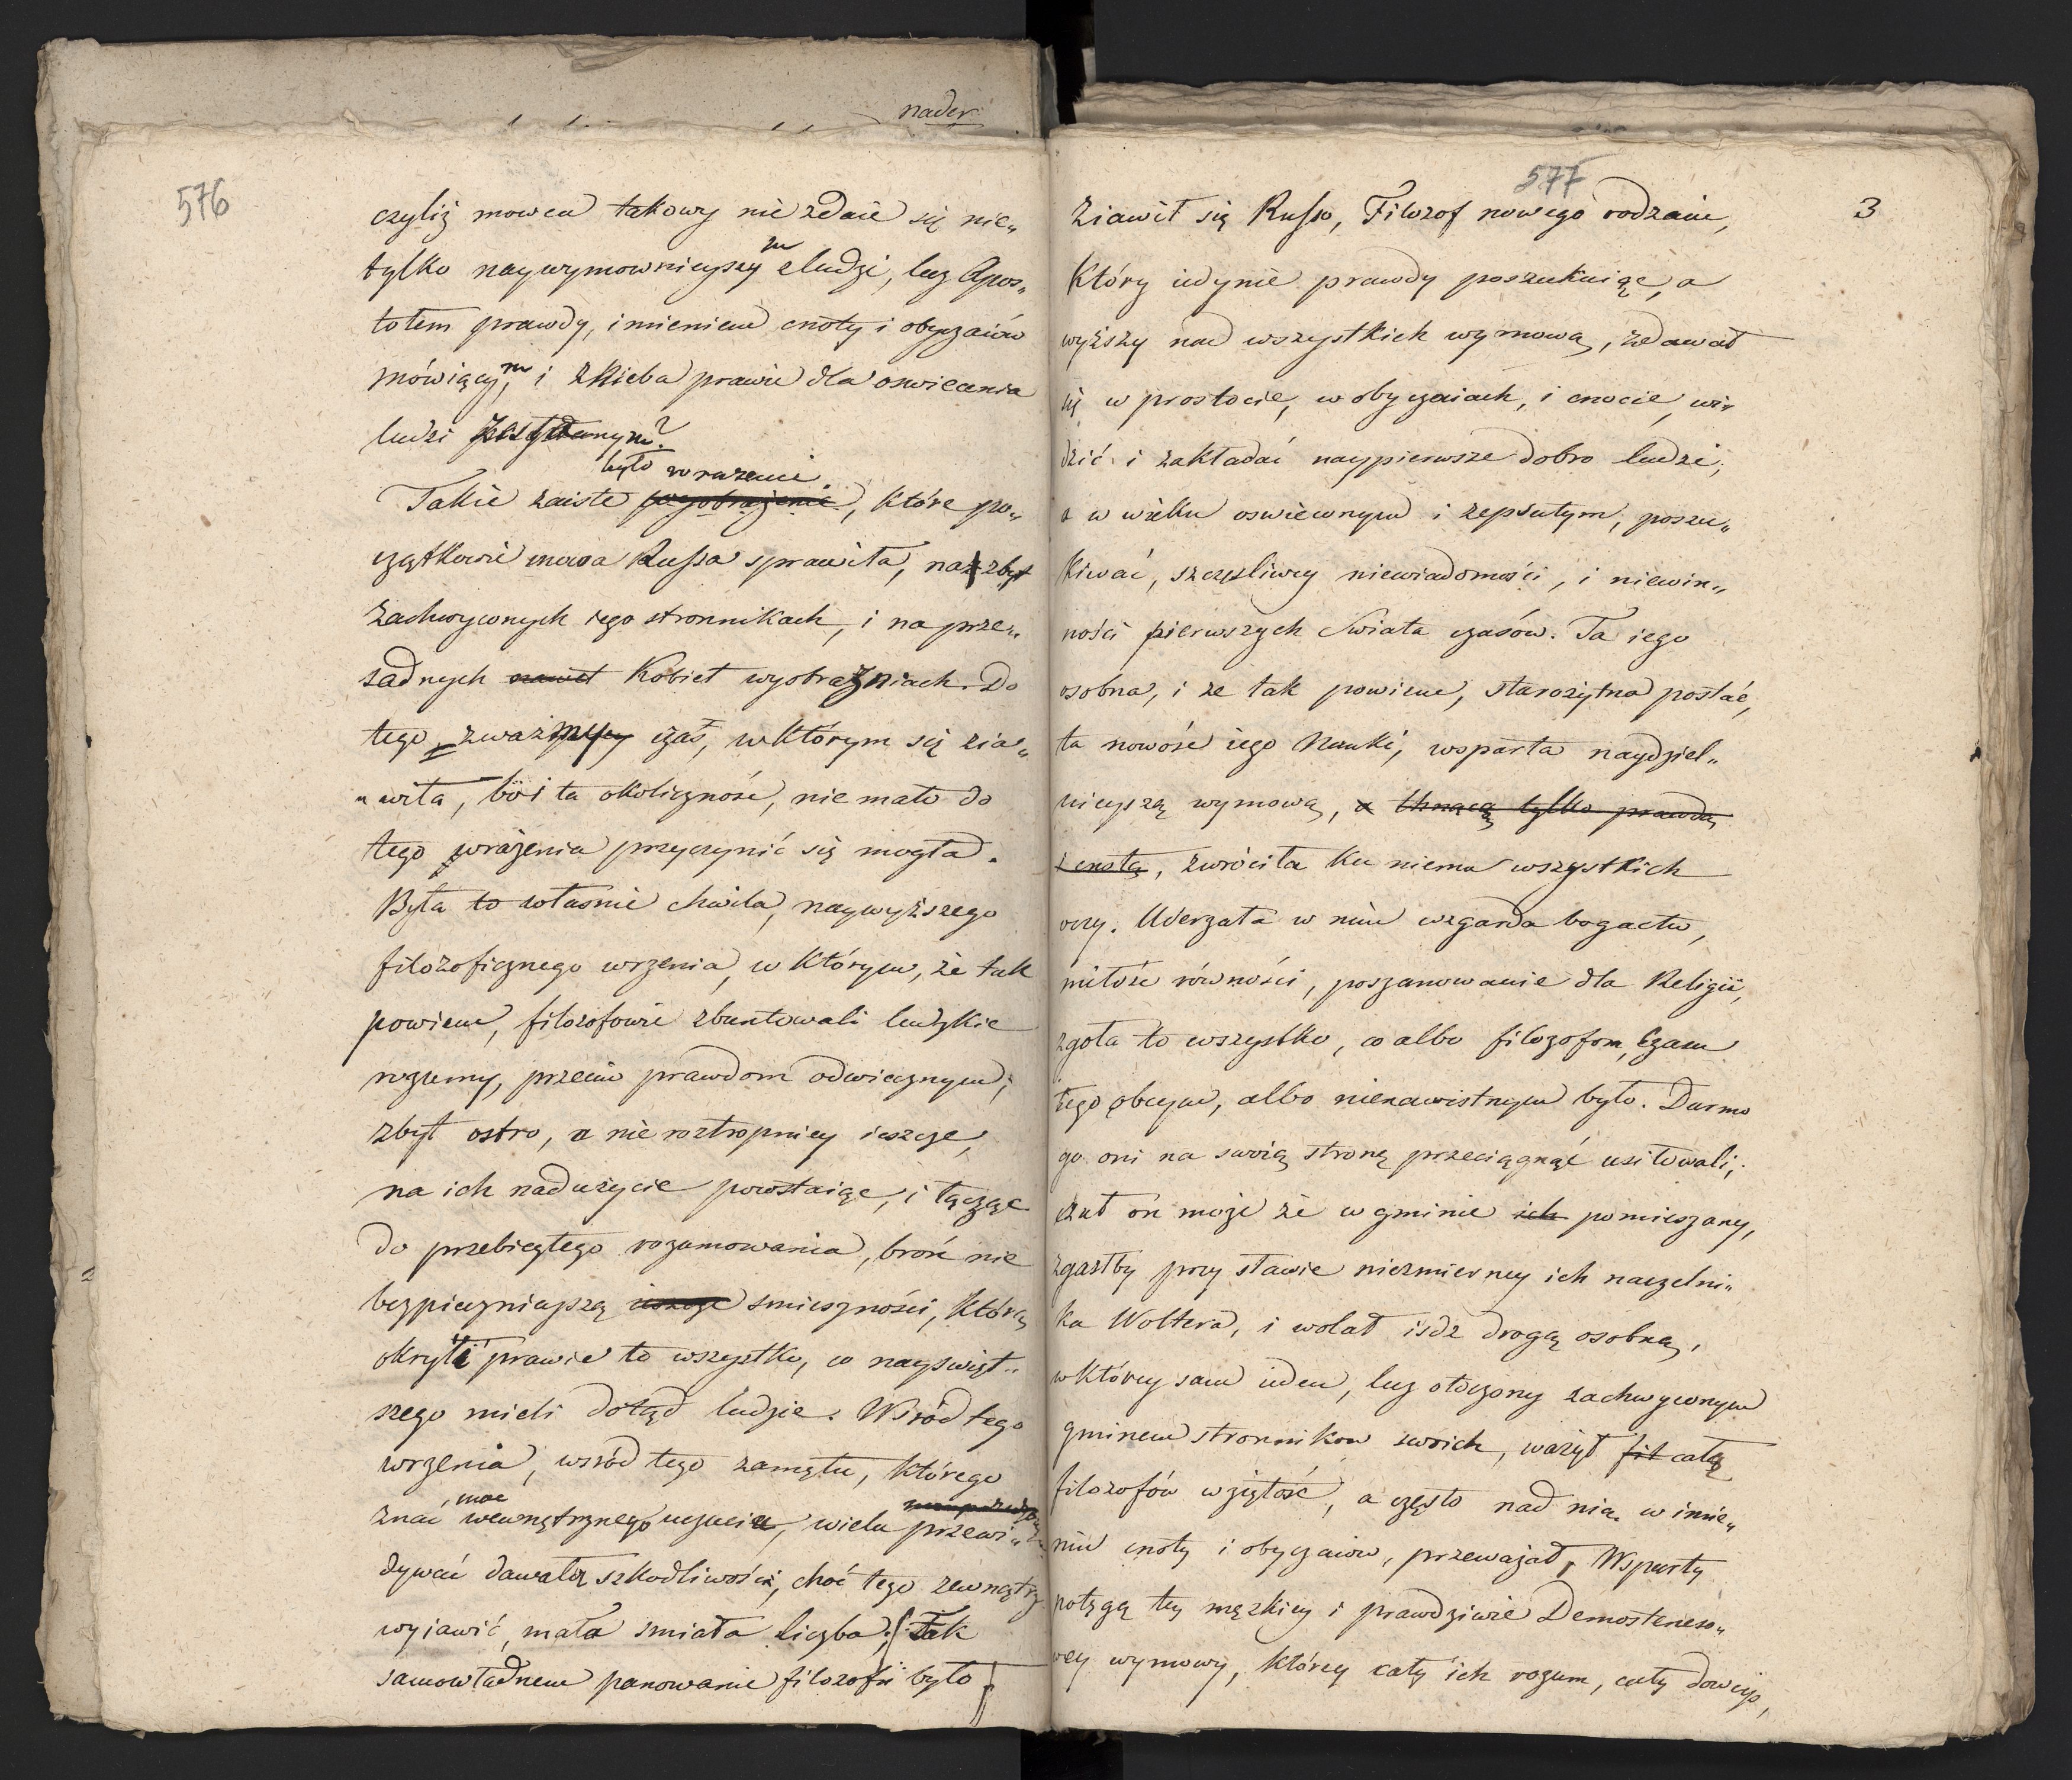 nader
576
czyliż mowca takowy nie zdaie się nie„
tylko naywymownieyszym z ludzi, lecz Apos„
tołem prawdy, imieniem cnoty i obyczaiów
mówiącym, i z Nieba prawie dla oswiecania
ludzi zesłanym?
było wrażenie
Takie zaiste wyobrażenie, które po„
czątkowie mowa Russa sprawiła, na zbyt
zachwyconych iego stronnikach, i na prze„
sadnych nawet Kobiet wyobraźniach. Do
tego zważmy czas, w którym się zia„
„wiła, bo i ta okoliczność, nie mało do
tego wrażenia przyczynić się mogła.
Była to własnie chwila, naywyższego
filozoficznego wrzenia, w którym, że tak
powiem, filozofowie zbuntowali ludzkie
rozumy, przeciw prawdom odwiecznym;
zbyt ostro, a nie roztropniey ieszcze,
na ich nadużycie powstaiąc, i łącząc
do przebiegłego rozumowania, broń nie
bezpiecznieyszą ieszcze smieszności, którą
okryli prawie to wszystko, co nayswięt„
szego mieli dotąd ludzie. Wśród tego
wrzenia, wsród tego zamętu, którego
moc
znać wewnętrznego uczucia, wielu przewi„
dywać dawała szkodliwość, choć tego zewnątrz
wyiawić, mała smiała liczba; Tak
samowładnem panowanie filozofii było
577
3
Ziawił się Russo, Filozof nowego rodzaiu,
Który iedynie prawdy poszukuiąc, a
wyższy nad wszystkich wymową, zdawał
się w prostocie, w obyczaiach, i cnocie, wi„
dzić i zakładać naypierwsze dobro ludzi;
a w wieku oswieconym i zepsutym, poszu„
kiwać, szczęsliwey niewiadomości, i niewin„
ności pierwszych Swiata czasów. Ta iego
osobna, i że tak powiem, starożytna postać,
ta nowość iego Nauki, wsparta naydziel„
nieyszą wymową, a tchnącą tylko prawdą
z cnotą, zwróciła ku niemu wszystkich
oczy. Uderzała w nim wzgarda bogactw,
miłość równości, poszanowanie dla Religii,
zgoła to wszystko, co albo filozofom czasu
tego obcym, albo nienawistnym było. Darmo
go oni na swoią stronę przeciągnąć usiłowali;
czuł on może że w gminie ich pomieszany,
zgasłby przy sławie niezmierney ich naczelni„
ka Woltera, i wolał isdz drogą osobną,
w którey sam ieden, lecz otoczony zachwyconym
gminem stronnikow swoich, ważył fil całą
filozofów wziętość, a często nad nią w imie„
niu cnoty i obyczaiow, przeważał. Wsparty
potęgą tey męzkiey i prawdziwie Demosteneso„
wey wymowy, którey cały ich rozum, cały dowcip,